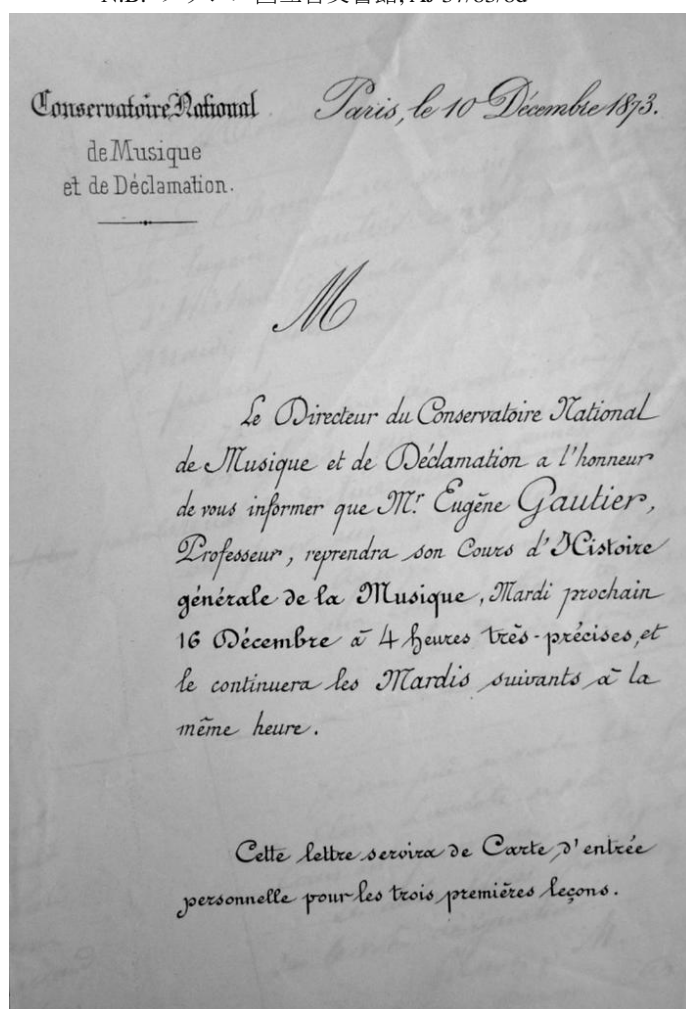 Conservatoire National
de Musique
et de Déclamation.
Paris, le 10 Décembre 1873.
M
Le Directeur du Conservatoire National
de Musique et de Déclamation a l'honneur
de vous informer que Mr. Eugène Gautier,
Professeur, reprendra son Cours d'Histoire
générale de la Musique, Mardi prochain
16 Décembre à 4 heures très-précises, et
le continuera les Mardis suivants à la
même heure.
Cette lettre servira de Carte d'entrée
personnelle pour les trois premières leçons.